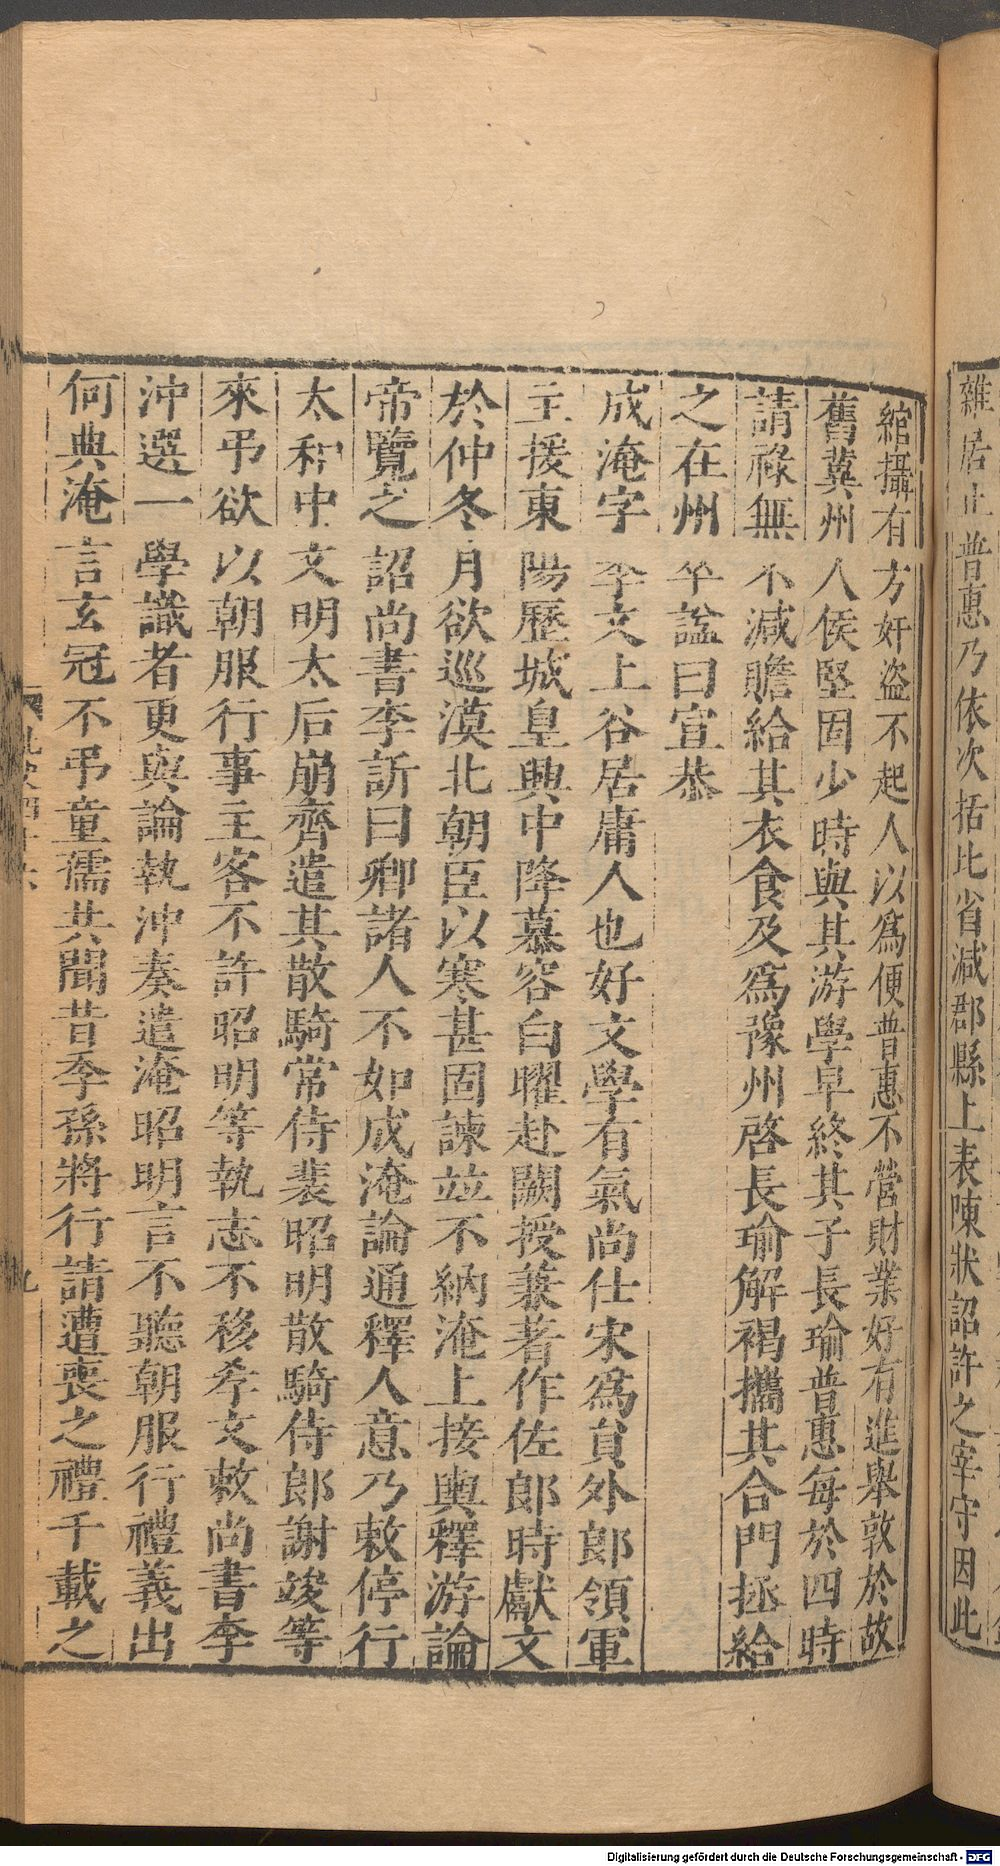 雜居止普惠乃依次括比省減郡縣上表陳狀詔許之宰守因此
綰攝有方奸盜不起人以爲便普惠不營財業好有進舉敦於故
舊冀州人侯堅固少時與其游學早終其子長瑜普惠每於四時
請祿無不減贍給其衣食及爲豫州啓長瑜解褐攜其合門拯給
之在州卒諡曰宣恭
成淹字季文上谷居庸人也好文學有氣尚仕宋爲員外郎領軍
主援東陽歷城皇興中降慕容白曜赴闕授兼著作佐郎時獻文
於仲冬月欲巡漠北朝臣以寒甚固諫並不納淹上接輿釋游論
帝覽之詔尚書李訢曰卿諸人不如成淹論通釋人意乃敕停行
太和中文明太后崩齊遣其散騎常侍裴昭明散騎侍郎謝竣等
來弔欲以朝服行事主客不許昭明等執志不移孝文敕尚書李
沖選一學識者更與論執沖奏遣淹昭明言不聽朝服行禮義出
何典淹言玄冠不弔童孺共聞昔季孫將行請遭喪之禮千載之
九
Digitalisierung gefördert durch die Deutsche Forschungsgemeinschaft - DFG